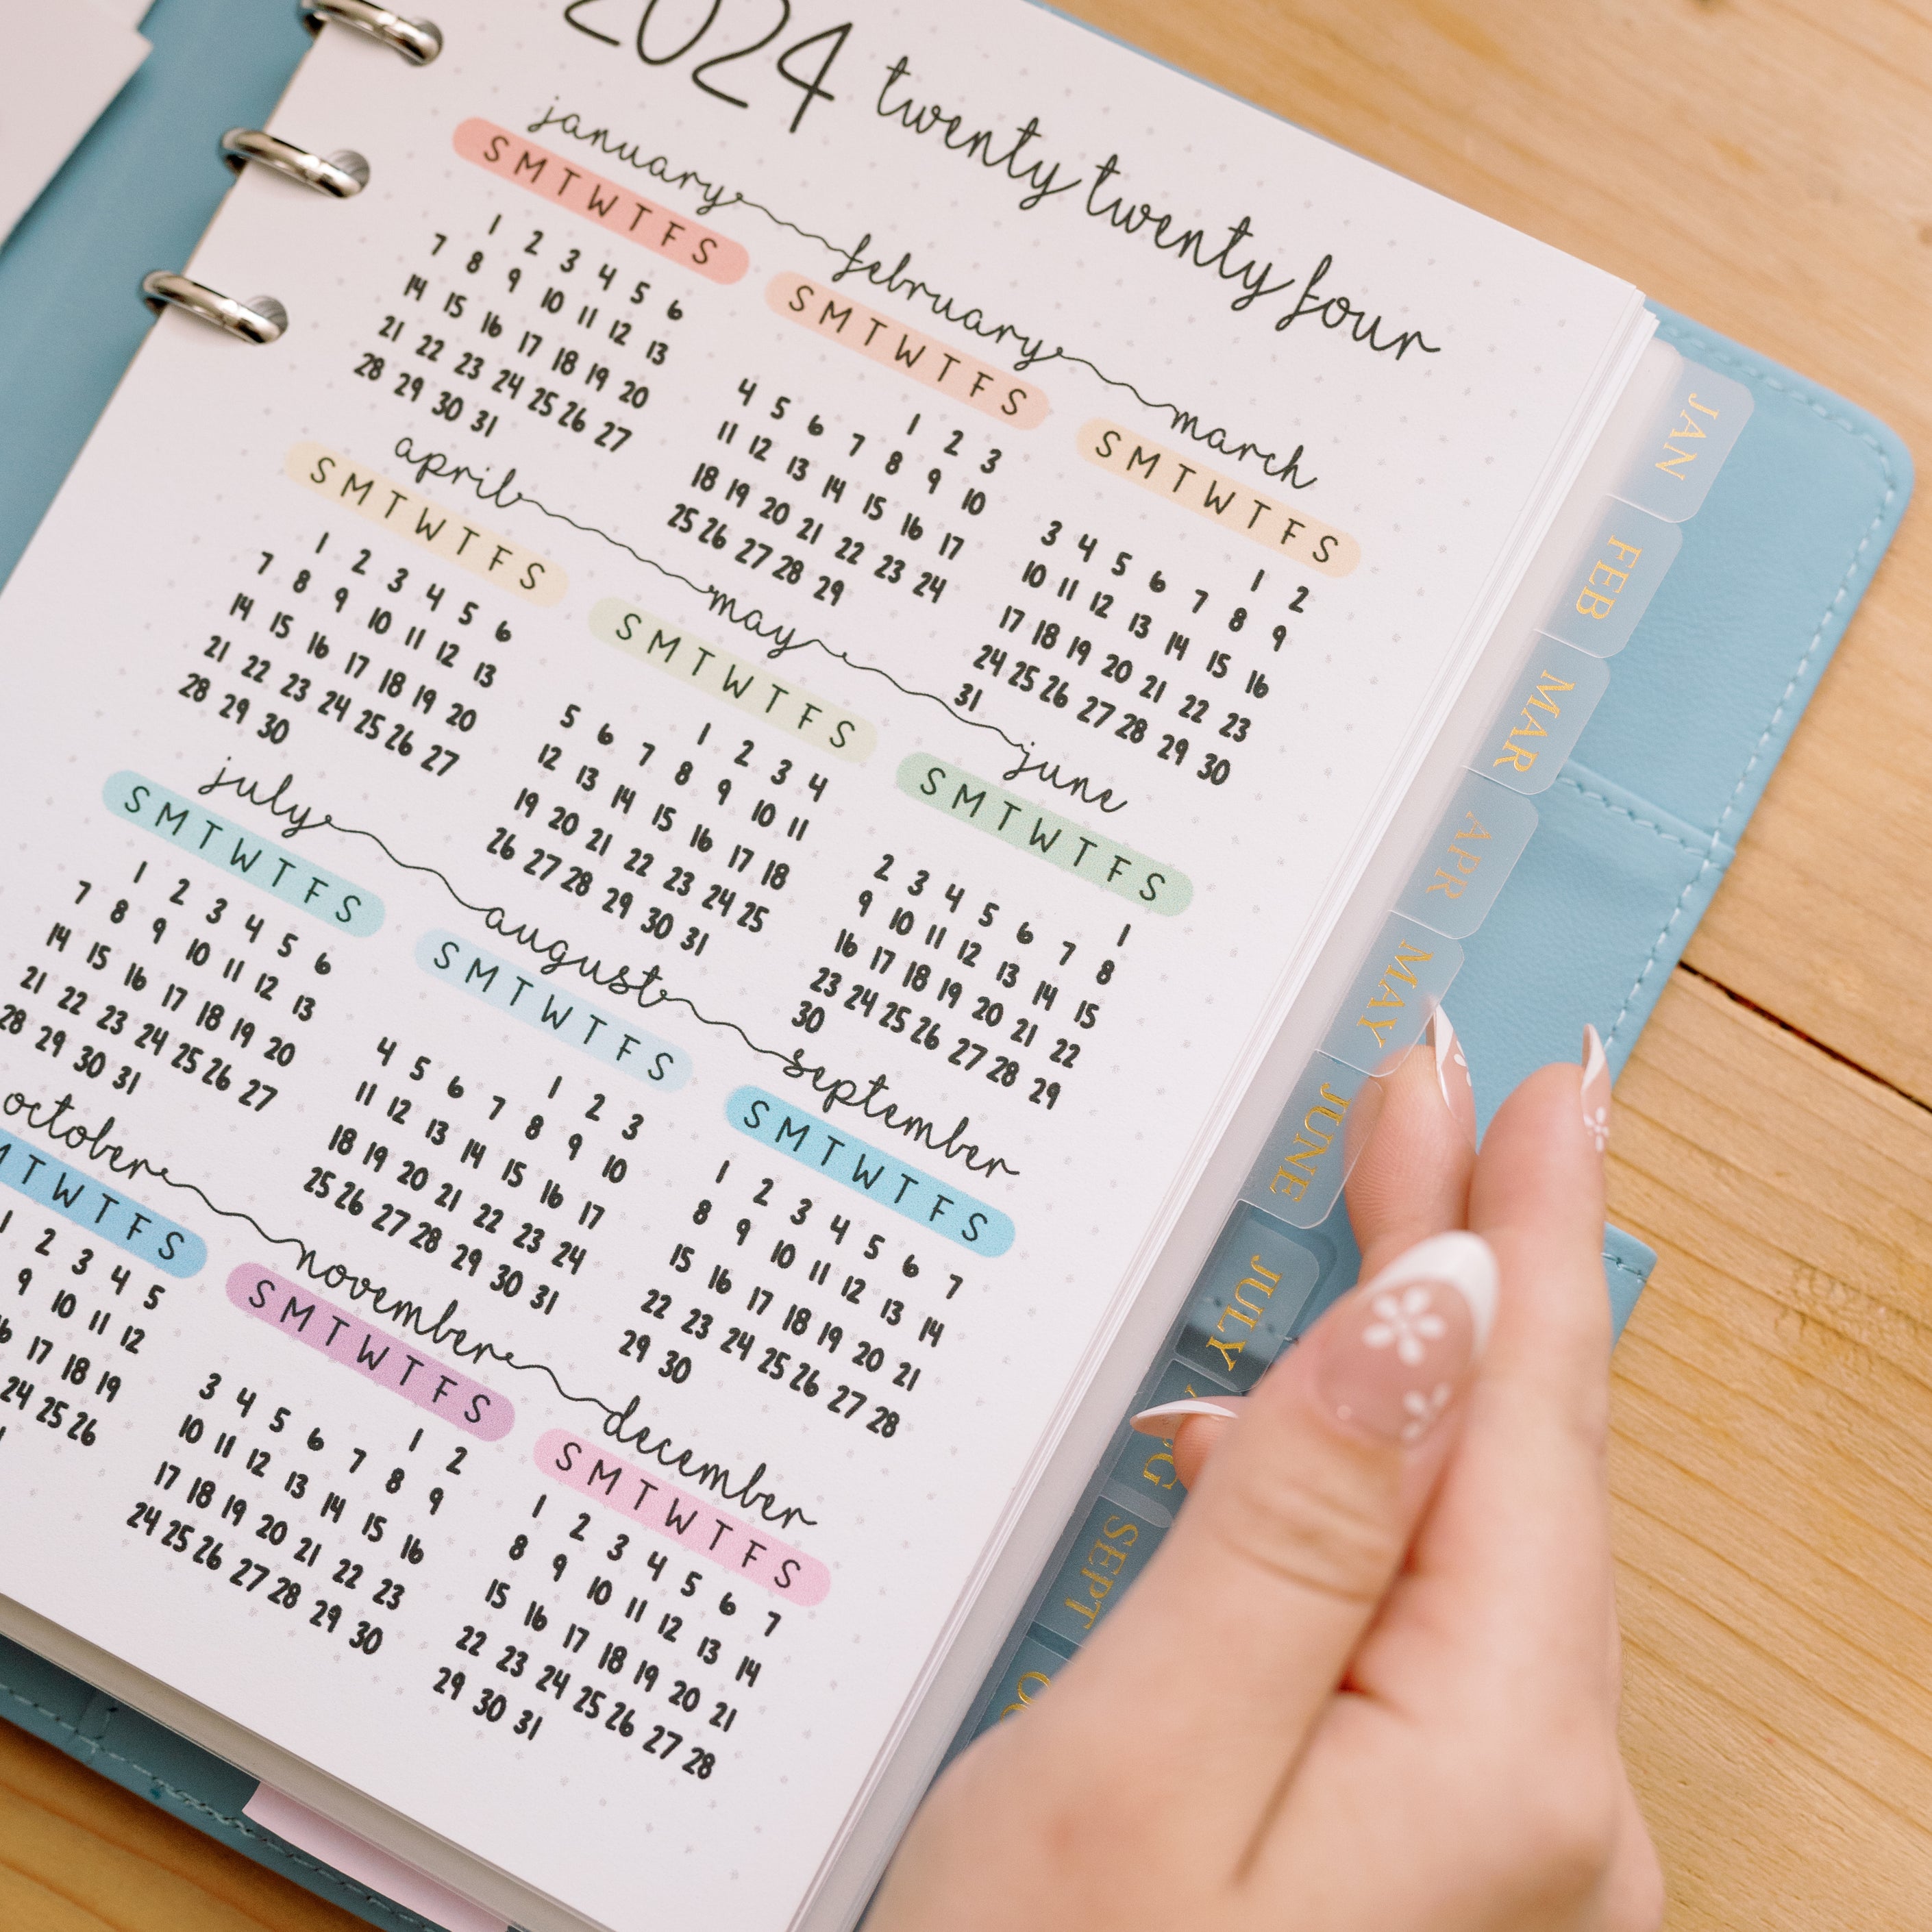 2024 twenty twenty four
january
S M T W T F S
1 2 3 4 5 6
7 8 9 10 11 12 13
14 15 16 17 18 19 20
21 22 23 24 25 26 27
28 29 30 31
february
S M T W T F S
1 2 3
4 5 6 7 8 9 10
11 12 13 14 15 16 17
18 19 20 21 22 23 24
25 26 27 28 29
march
S M T W T F S
1 2
3 4 5 6 7 8 9
10 11 12 13 14 15 16
17 18 19 20 21 22 23
24 25 26 27 28 29 30
31
april
S M T W T F S
1 2 3 4 5 6
7 8 9 10 11 12 13
14 15 16 17 18 19 20
21 22 23 24 25 26 27
28 29 30
may
S M T W T F S
1 2 3 4
5 6 7 8 9 10 11
12 13 14 15 16 17 18
19 20 21 22 23 24 25
26 27 28 29 30 31
june
S M T W T F S
1
2 3 4 5 6 7 8
9 10 11 12 13 14 15
16 17 18 19 20 21 22
23 24 25 26 27 28 29
30
july
S M T W T F S
1 2 3 4 5 6
7 8 9 10 11 12 13
14 15 16 17 18 19 20
21 22 23 24 25 26 27
28 29 30 31
august
S M T W T F S
1 2 3
4 5 6 7 8 9 10
11 12 13 14 15 16 17
18 19 20 21 22 23 24
25 26 27 28 29 30 31
september
S M T W T F S
1 2 3 4 5 6 7
8 9 10 11 12 13 14
15 16 17 18 19 20 21
22 23 24 25 26 27 28
29 30
october
M T W T F S
1 2 3 4 5
9 10 11 12
17 18 19
24 25 26
november
S M T W T F S
1 2
3 4 5 6 7 8 9
10 11 12 13 14 15 16
17 18 19 20 21 22 23
24 25 26 27 28 29 30
december
S M T W T F S
1 2 3 4 5 6 7
8 9 10 11 12 13 14
15 16 17 18 19 20 21
22 23 24 25 26 27 28
29 30 31
JAN
FEB
MAR
APR
MAY
JUNE
JULY
SEPT